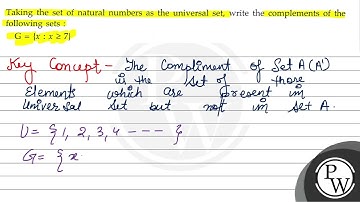 Taking the set of natural numbers as the universal set, write the complements of the
following sets :
G = {x : x ≥ 7}
Key Concept - The Compliment of Set A (A')
is the set of those
Elements which are present in
Universal set but not in set A.
U = { 1, 2, 3, 4 - - - }
G = { x
P
W